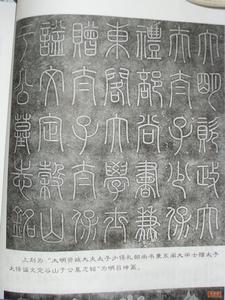 大明資政大
夫太子少保
禮部尚書兼
東閣大學士
贈太子太保
謚文定穀山
于公墓志銘
上刻为“大明资政大夫太子少保礼部尚书兼东阁大学士赠太子
太保谥文定谷山于公墓志铭”为明吕坤篆。